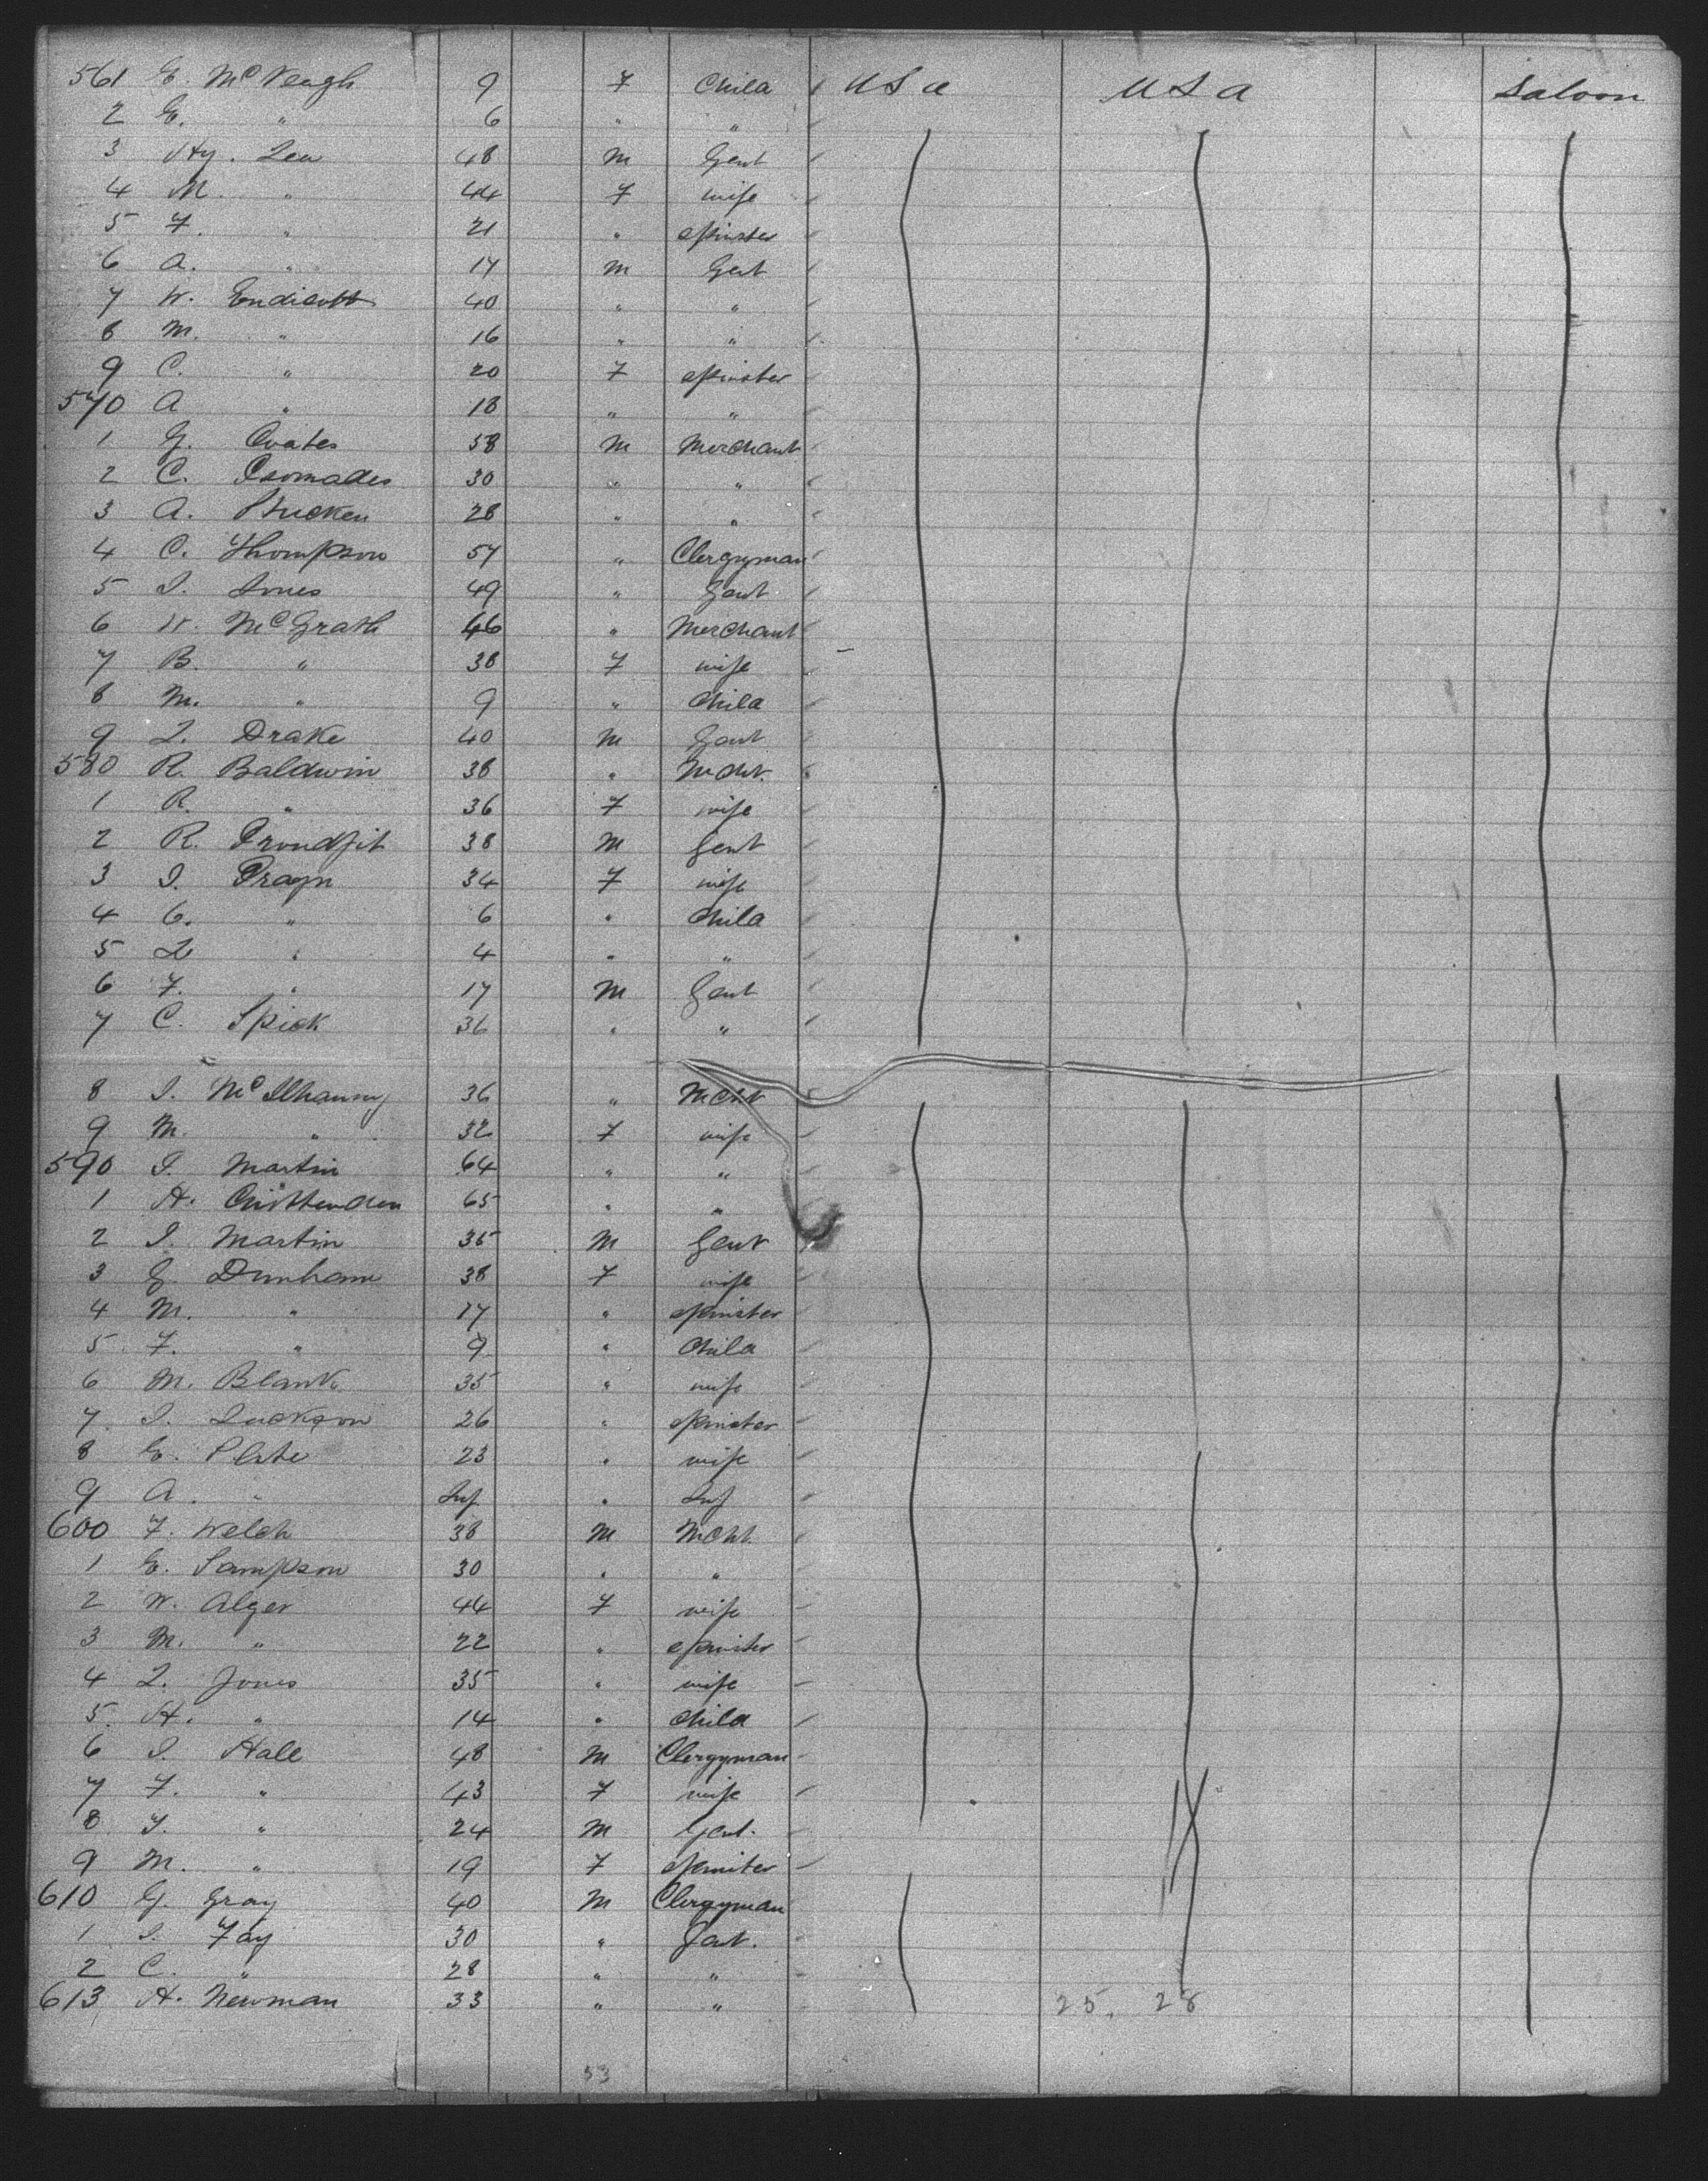 561 E. McVeagh 9 F Child USa USa Saloon
2 E. " 6 " "
3 Hy. Lea 48 M Gent
4 M. " 44 F wife
5 F. " 21 " spinster
6 A. " 17 M Gent
7 W. Endicott 40 " "
8 M. " 16 " "
9 C. " 20 F spinster
570 A " 18 " "
1 G. Coates 58 M Merchant
2 C. Psomades 30 " "
3 A. Stucken 28 " "
4 C. Thompson 57 " Clergyman
5 I. Jones 49 " Gent
6 W. McGrath 46 " Merchant
7 B. " 38 F wife
8 M. " 9 " Child
9 L. Drake 40 M Gent
580 R. Baldwin 38 " Mcht.
1 R. " 36 F wife
2 R. Proudfit 38 M Gent
3 I. Pragn 34 F wife
4 C. " 6 " Child
5 L " 4 " "
6 F. " 17 M Gent
7 C. Spick 36 " "
8 I. McIlhanny 36 " Mcht
9 M. " 32 F wife
590 I. Martin 64 " "
1 H. Crittenden 65 " "
2 I. Martin 35 M Gent
3 G. Dunham 38 F wife
4 M. " 17 " spinster
5 F. " 9 " Child
6 M. Blank 35 " wife
7 I. Jackson 26 " spinster
8 E. Plate 23 " wife
9 A. " Inf " Inf
600 F. Welch 38 M Mcht.
1 E. Sampson 30 " "
2 W. Alger 44 F wife
3 M. " 22 " spinster
4 L. Jones 35 " wife
5. H. " 14 " Child
6 I. Hall 48 M Clergyman
7 F. " 43 F wife
8 T. " 24 M Gent.
9 M. " 19 F spinster
610 G. Gray 40 M Clergyman
1 I. Fay 30 " Gent.
2 C. " 28 " "
613 H. Newman 33 " " 25. 28
53